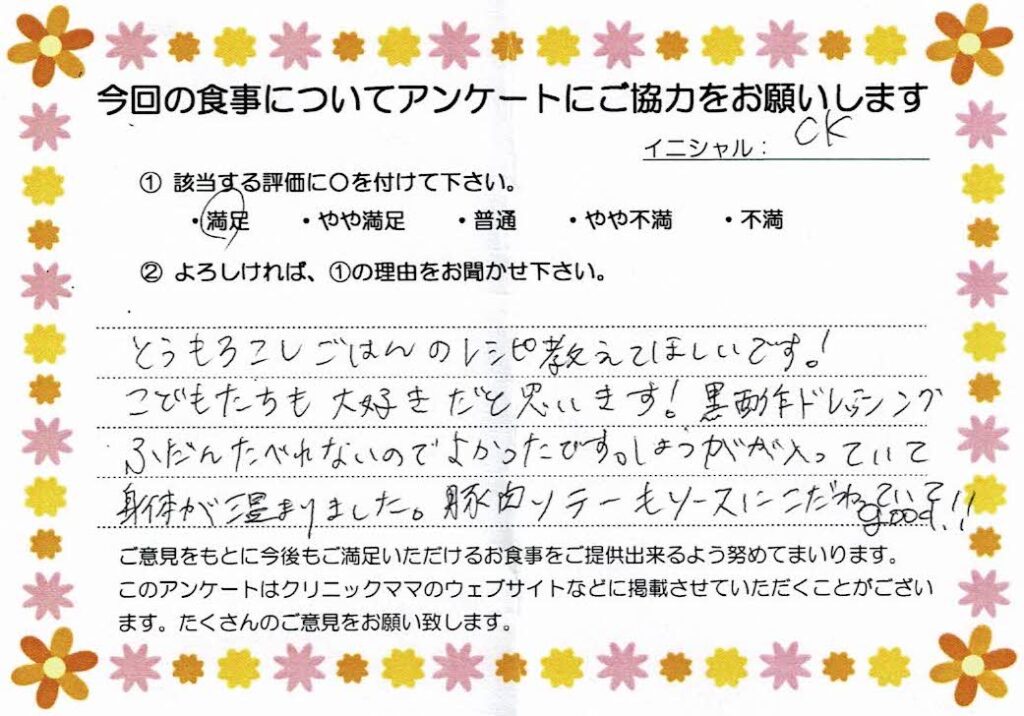 今回の食事についてアンケートにご協力をお願いします
イニシャル： CK
① 該当する評価に〇を付けて下さい。
・満足 ・やや満足 ・普通 ・やや不満 ・不満
② よろしければ、①の理由をお聞かせ下さい。
とうもろこしごはんのレシピ教えてほしいです！
こどもたちも大好きだと思います！黒酢ドレッシング
ふだんたべれないのでよかったです。しょうがが入っていて
身体が温まりました。豚肉ソテーもソースにこだわっていて
good!!
ご意見をもとに今後もご満足いただけるお食事をご提供出来るよう努めてまいります。
このアンケートはクリニックママのウェブサイトなどに掲載させていただくことがござい
ます。たくさんのご意見をお願い致します。